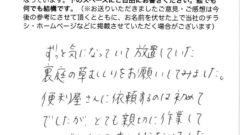 なっています。下のスペースにご自由にお書きください。絵でも
何でも結構です。（※お送りいただきましたご意見・ご感想は今
後の参考にさせて頂くとともに、お名前を伏せた上で当社のチラ
シ・ホームページなどに掲載させていただく場合がございます）
ずっと気になっていて放置していた
裏庭の草むしりをお願いしてみました。
便利屋さんに依頼するのは初めて
でしたが、とても親切に作業して